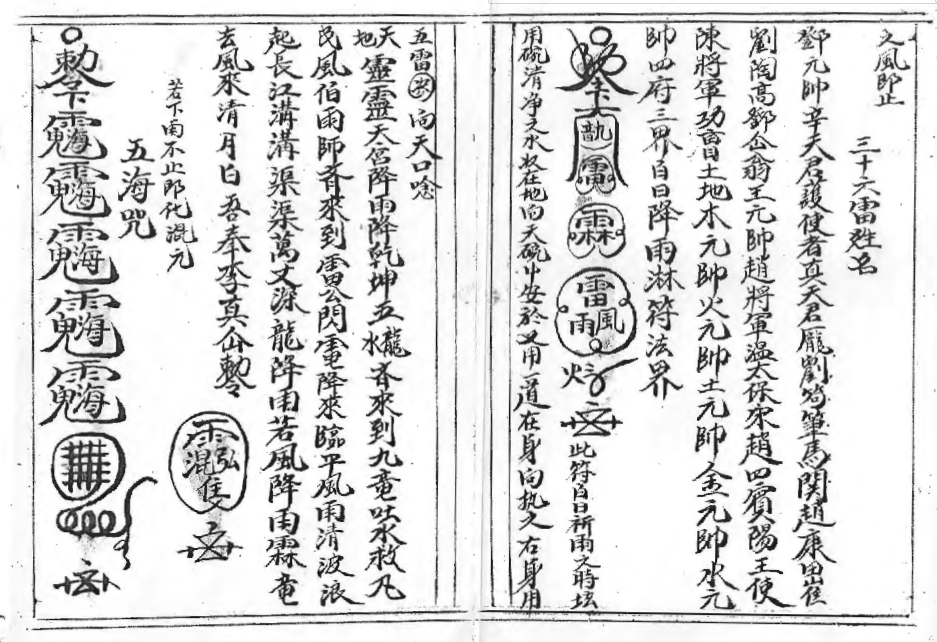 之風即止
三十六雷姓名
鄧元帥辛天君護使者真天君龐劉苟畢馬関趙康田崔
劉陶高鄧岳翁王元帥趙將軍溫太保宋趙四賓陽王使
陳將軍功曹土地木元帥火元帥土元帥金元帥水元
帥四府三界白日降雨淋符法界
勅令
雷風雨
此符白日祈雨之時坛
用碗清净之水奴在地向天碗中安於又用一道在身向执之右身用
五雷向天口唸
天地靈靈天宮降雨降乾坤五龍水齐來到九竜吐水救凡
民風伯雨師齐來到雷公閃電降來臨平風雨清波浪
起長江溝溝渠渠萬丈深龍降雨若風降雨霖竜
去風來清月白吾奉李真仙勅令
若下雨不止即化混元
五海咒
勅令